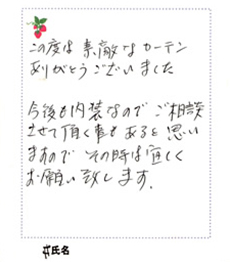 この度は 素敵なカーテン
ありがとうございました
今後も内装なので ご相談
させて頂く事もあると思い
ますので その時は宜しく
お願い致します.
氏名